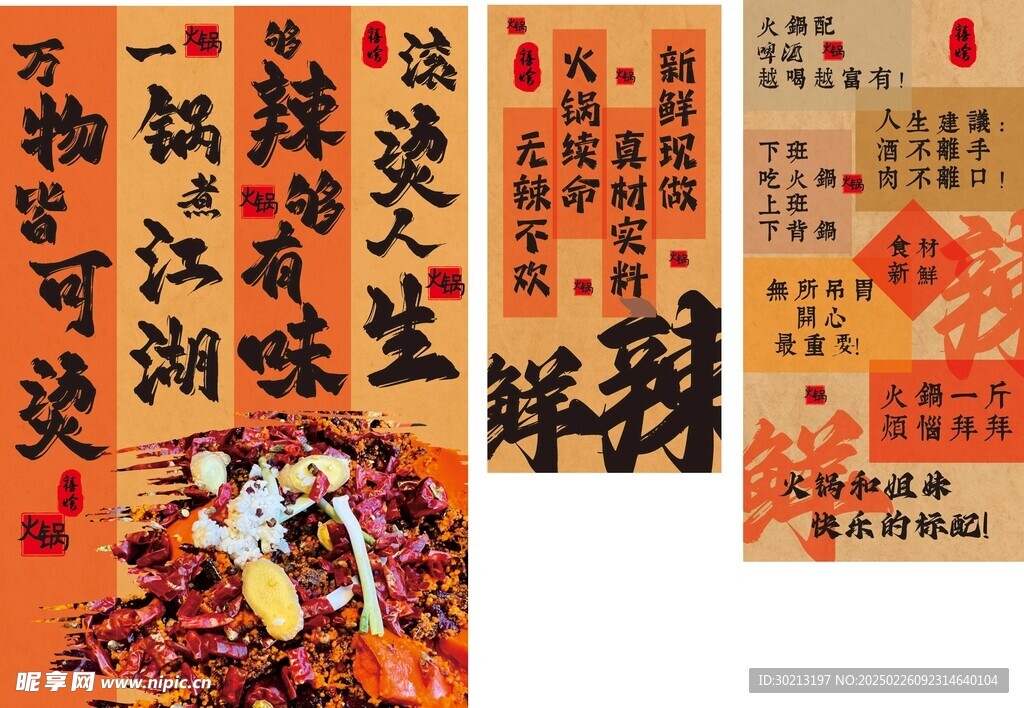 滚烫人生
够辣够有味
一锅煮江湖
万物皆可烫
火锅
火锅
火锅
火锅
新鲜现做
真材实料
火锅续命
无辣不欢
火锅
火锅
火锅
火锅
鲜辣
火鍋配
啤酒
越喝越富有!
火锅
人生建議:
酒不離手
肉不離口!
下班
吃火鍋
上班
下背鍋
火锅
食材
新鮮
辣
無所吊胃
開心
最重要!
火锅
火鍋一斤
煩惱拜拜
鲜
火锅和姐妹
快乐的标配!
昵享网 www.nipic.cn
ID:30213197 NO:20250226092314640104